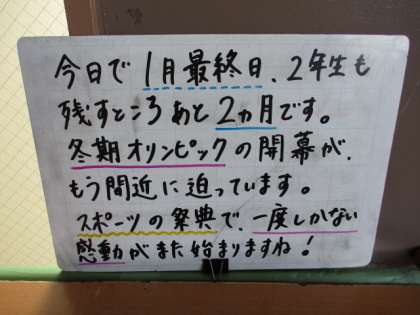 今日で1月最終日、2年生も
残すところあと2ヵ月です。
冬期オリンピックの開幕が、
もう間近に迫っています。
スポーツの祭典で、一度しかない
感動がまた始まりますね！